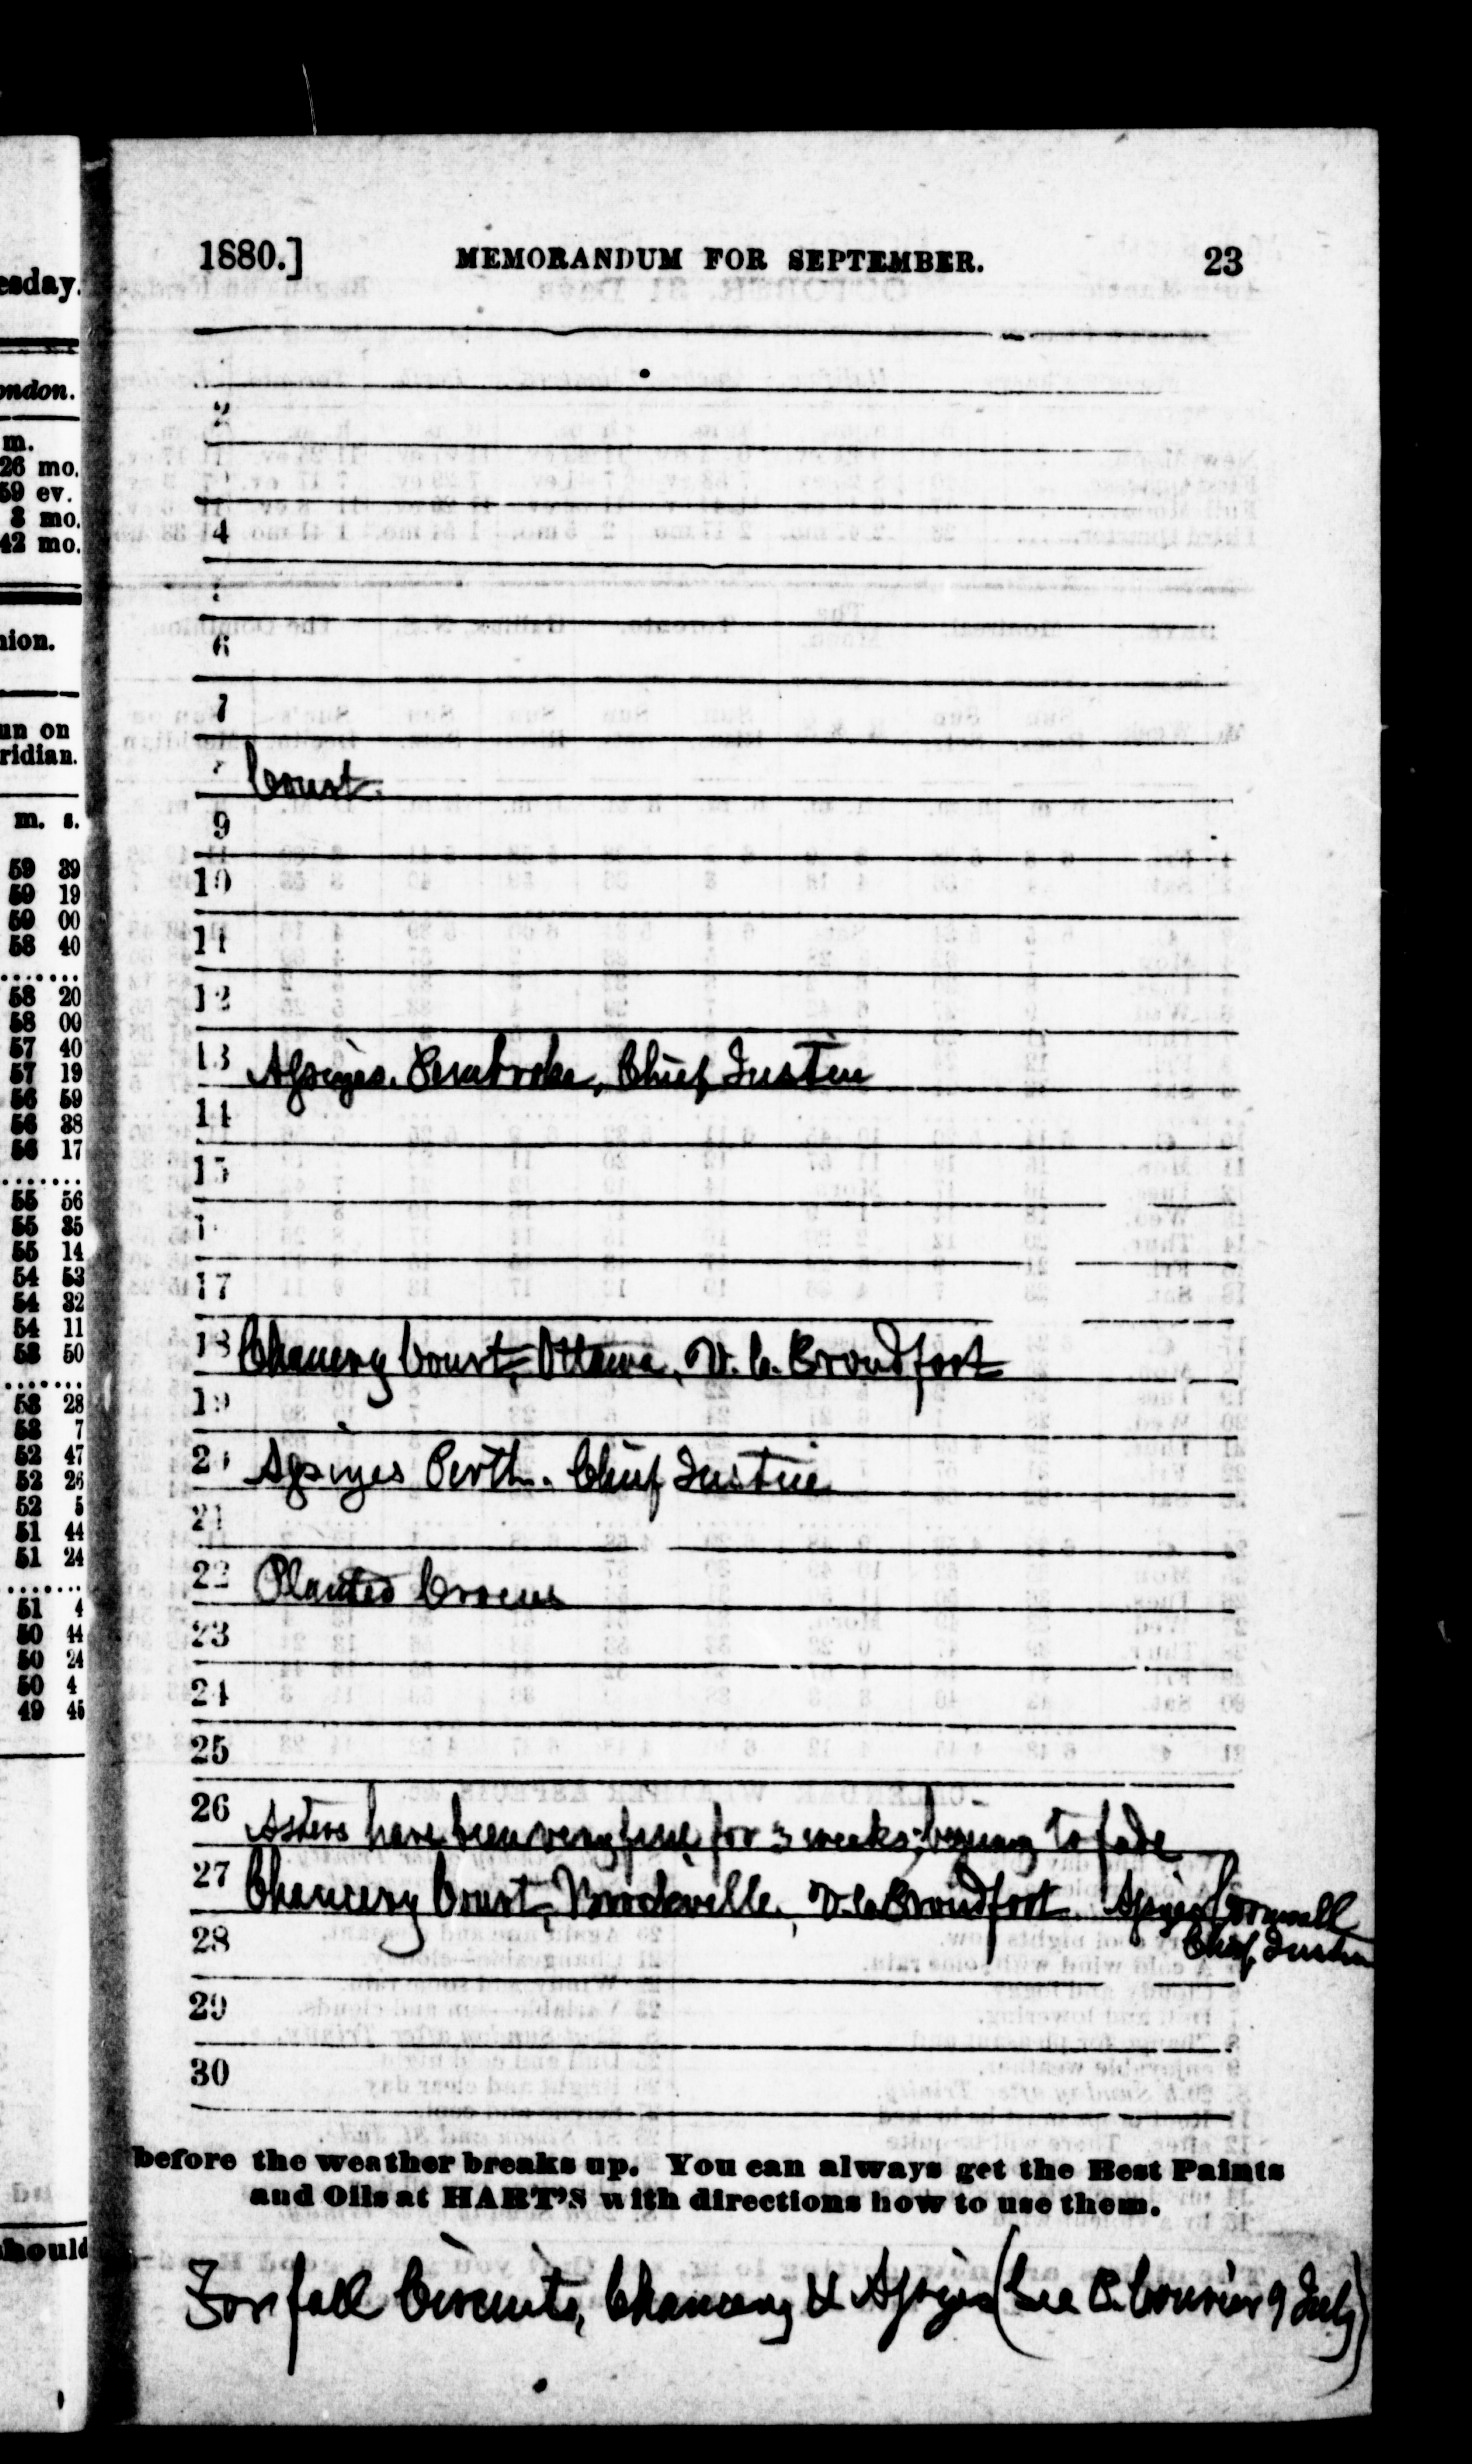 1880.] MEMORANDUM FOR SEPTEMBER. 23
2
4
6
7
Court
9
10
11
12
13 Assizes. Pembroke, Chief Justice
14
15
17
18 Chancery Court, Ottawa, V. C. Proudfoot
19
20 Assizes Perth. Chief Justice
21
22 Planted Crocus
23
24
25
26 Asters have been very fine for 3 weeks; begining to fade
27 Chancery Court, Brockville, V. C. Proudfoot Assizes Cornwall
28 Chief Justice
29
30
before the weather breaks up. You can always get the Best Paints
and Oils at HART'S with directions how to use them.
For fall Circuits, Chancery & Assizes (See B. Courier 9 July)
esday.
ondon.
m.
26 mo.
59 ev.
8 mo.
42 mo.
nion.
un on
ridian.
m. s.
59 39
59 19
59 00
58 40
58 20
58 00
57 40
57 19
56 59
56 38
56 17
55 56
55 35
55 14
54 53
54 32
54 11
53 50
53 28
53 7
52 47
52 26
52 5
51 44
51 24
51 4
50 44
50 24
50 4
49 45
hould